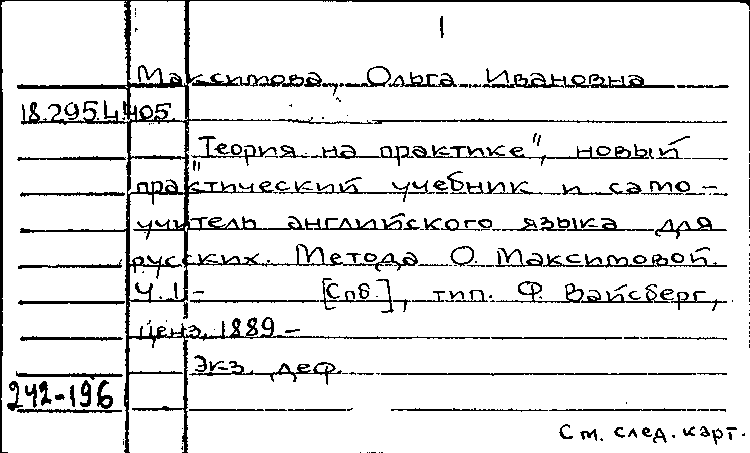 1
Максимова, Ольга Ивановна
18.295.4.405.
"Теория на практике", новый
практический учебник и само-
учитель английского языка для
русских. Метода О. Максимовой.
Ч. 1 - [Спб.], тип. Ф. Вайсберг,
ценз. 1889 -
Экз. деф.
242-196
См. след. карт.